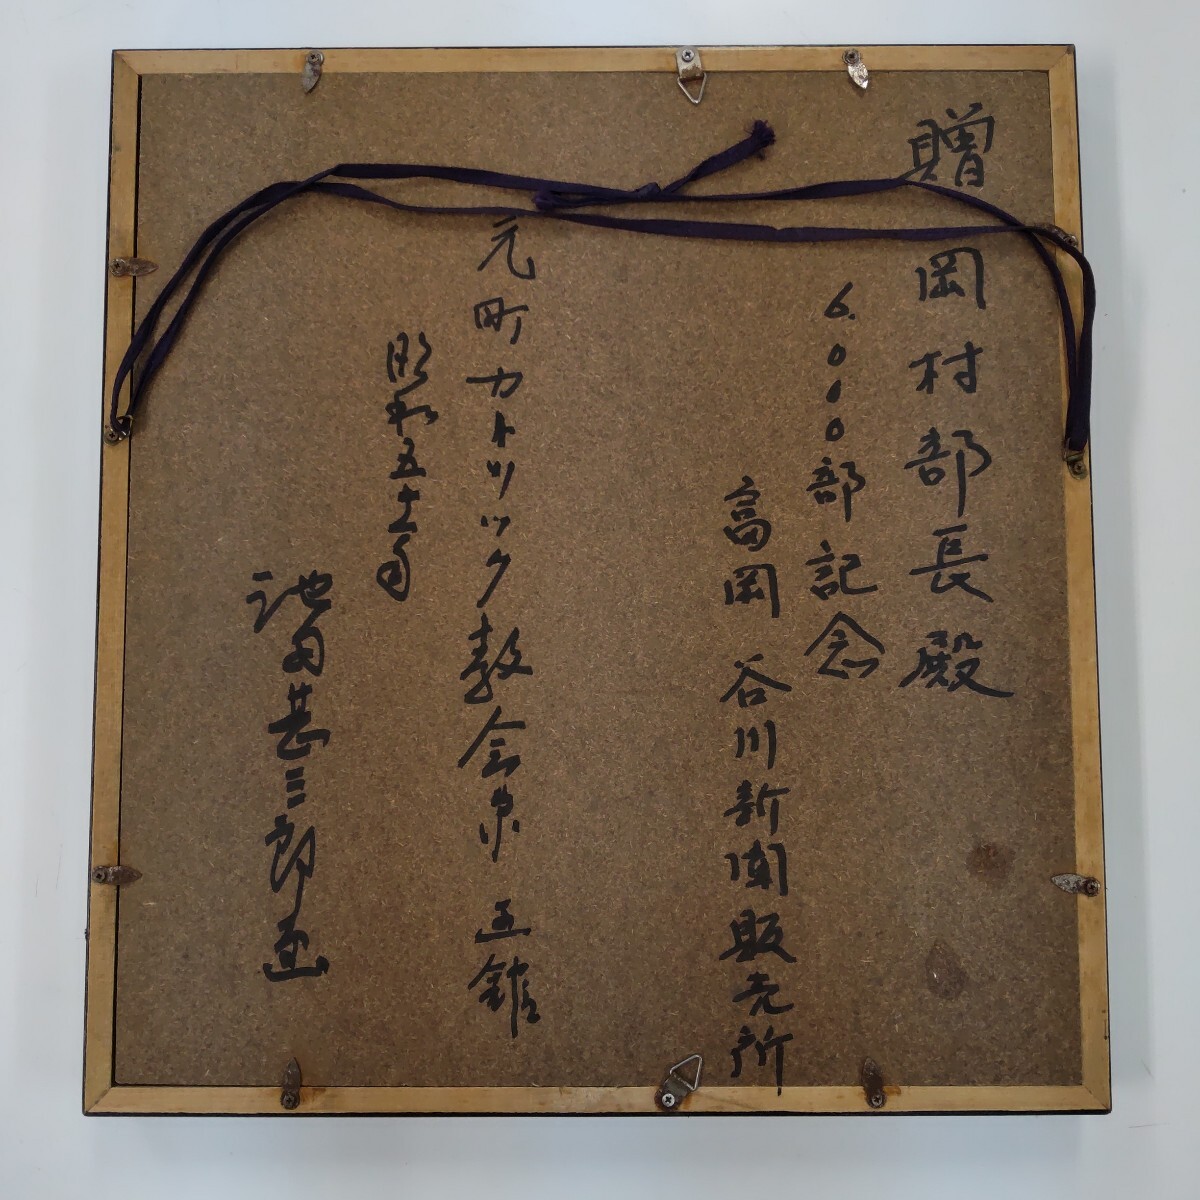 贈 岡村部長殿
6,000部記念
高岡 谷川新聞販売所
元町カトリック教会
昭和五十二年
池田甚三郎画